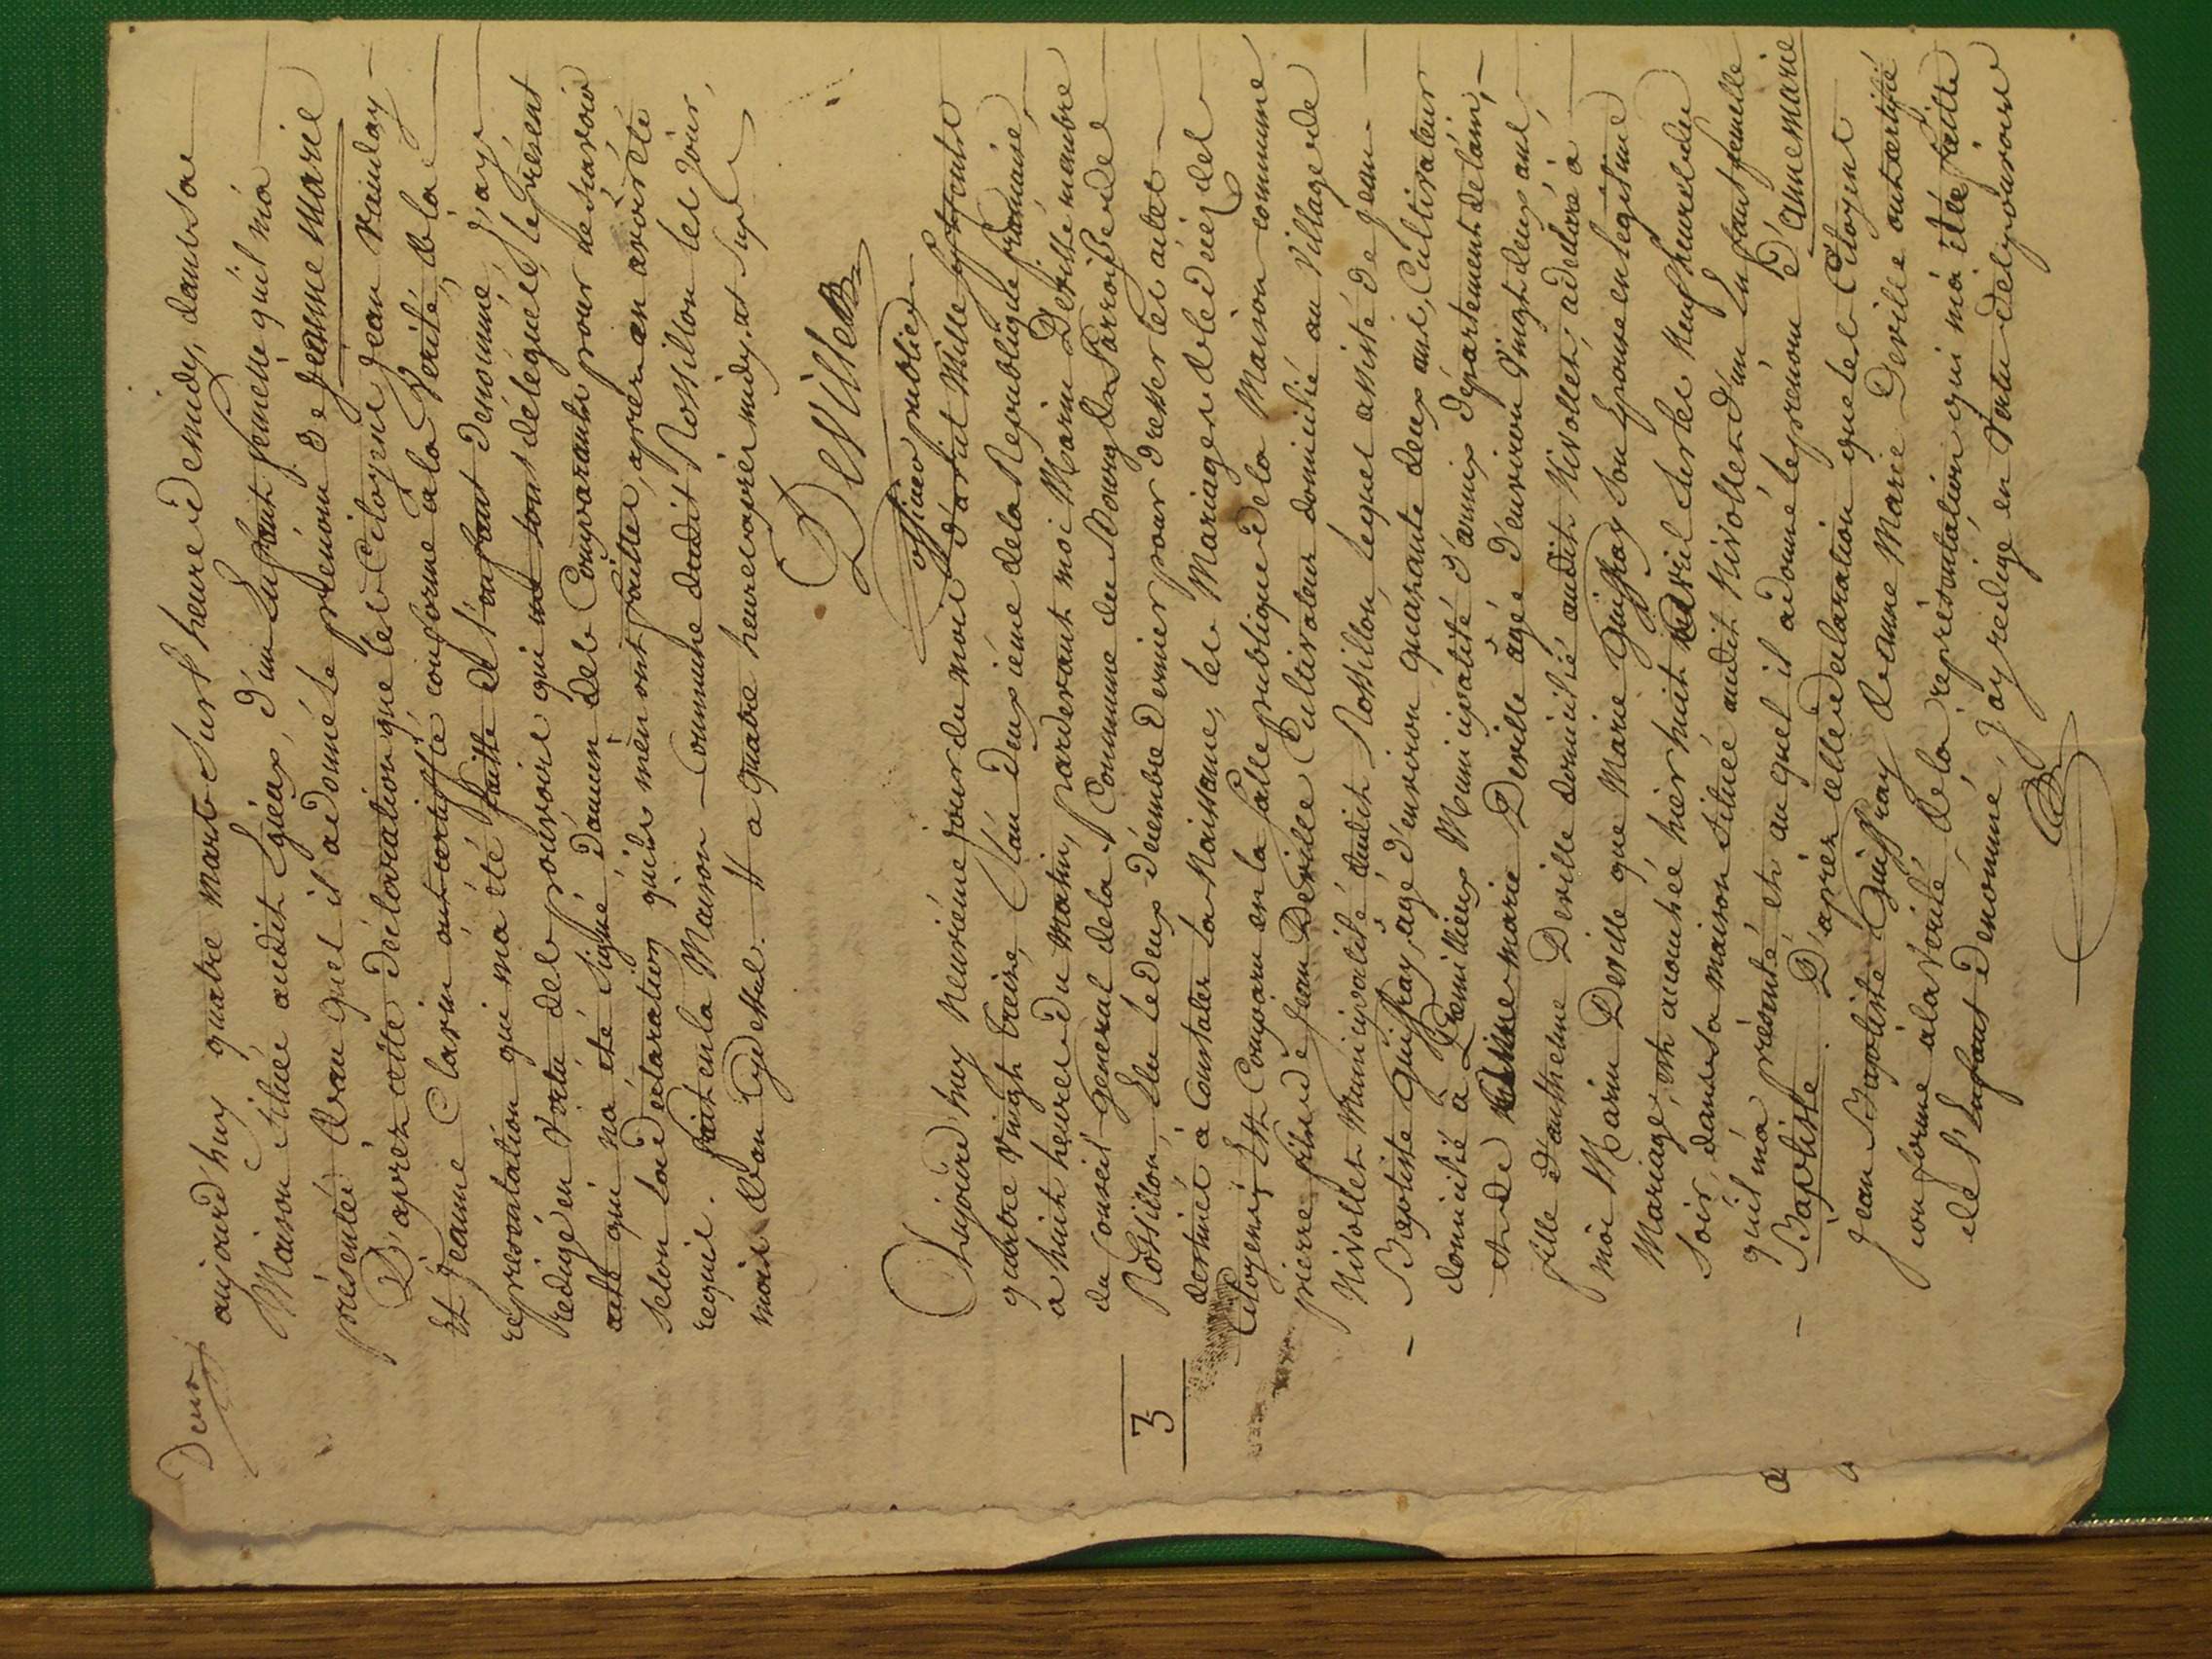 Deux
aujourd'huy quatre mars sur l'heure de midy, dans sa
Maison située audit Egieux, d'un Enfant femelle qu'il m'a
présenté & auquel il a donné le prénom de Jeanne Marie
D'après cette déclaration que les Citoyens Jean
et Jeanne Clarin ont certiffié conforme à la Verité, & la
représentation qui m'a été faitte de l'enfant denommé, j'ay
redigé en Vertu des pouvoirs qui me sont délégués, le présent
acte qui n'a été signé d'aucun des Comparants pour ne savoir
selon la déclaration qu'ils m'en ont faitte, après en avoir été
requis. fait en la Maison Commune dudit Rossillon les jour,
mois & an Cy dessus. # a quatre heures après midy. et
Deville
officier public
Aujourd'huy neuvième jour du mois d'avril mille sept cents
quatre vingt treize, l'an deuxième de la Republique française,
a huit heures du matin, pardevant moi Marin Deville membre
du Conseil general de la Commune du Bourg & Parroisse de
Rossillon, Elu le deux décembre dernier pour dresser les actes
destinés à Constater la Naissance, les Mariages & le décès des
Citoyens, Est Comparu en la salle publique de la Maison commune
pierre fils de Jean Deville Cultivateur domicilié au Village de
Nivollet Municipalité dudit Rossillon, lequel assisté de jean
Baptiste Guiffray, agé d'environ quarante deux ans, Cultivateur
domicilié à Premillieux Municipalité d'armix département de l'ain,
et de marie Deville agée d'environ Vingt deux ans,
fille d'anthelme Deville domicilié audit Nivollet, a déclaré à
moi Marin Deville que Marie Guiffray son Epouse en legitime
Mariage, est accouchée hier huit avril sur les neuf heures du
soir, dans sa maison située audit Nivollet d'un Enfant femelle
qu'il m'a présenté, et auquel il a donné le prénom d'anne marie
Baptiste. D'après cette déclaration que les Citoyens
Jean Baptiste Guiffray & anne Marie Deville ont certifié
conforme à la Verité & la représentation qui m'a été faitte
de l'Enfant denommé, j'ay redigé en Vertu des pouvoirs
3